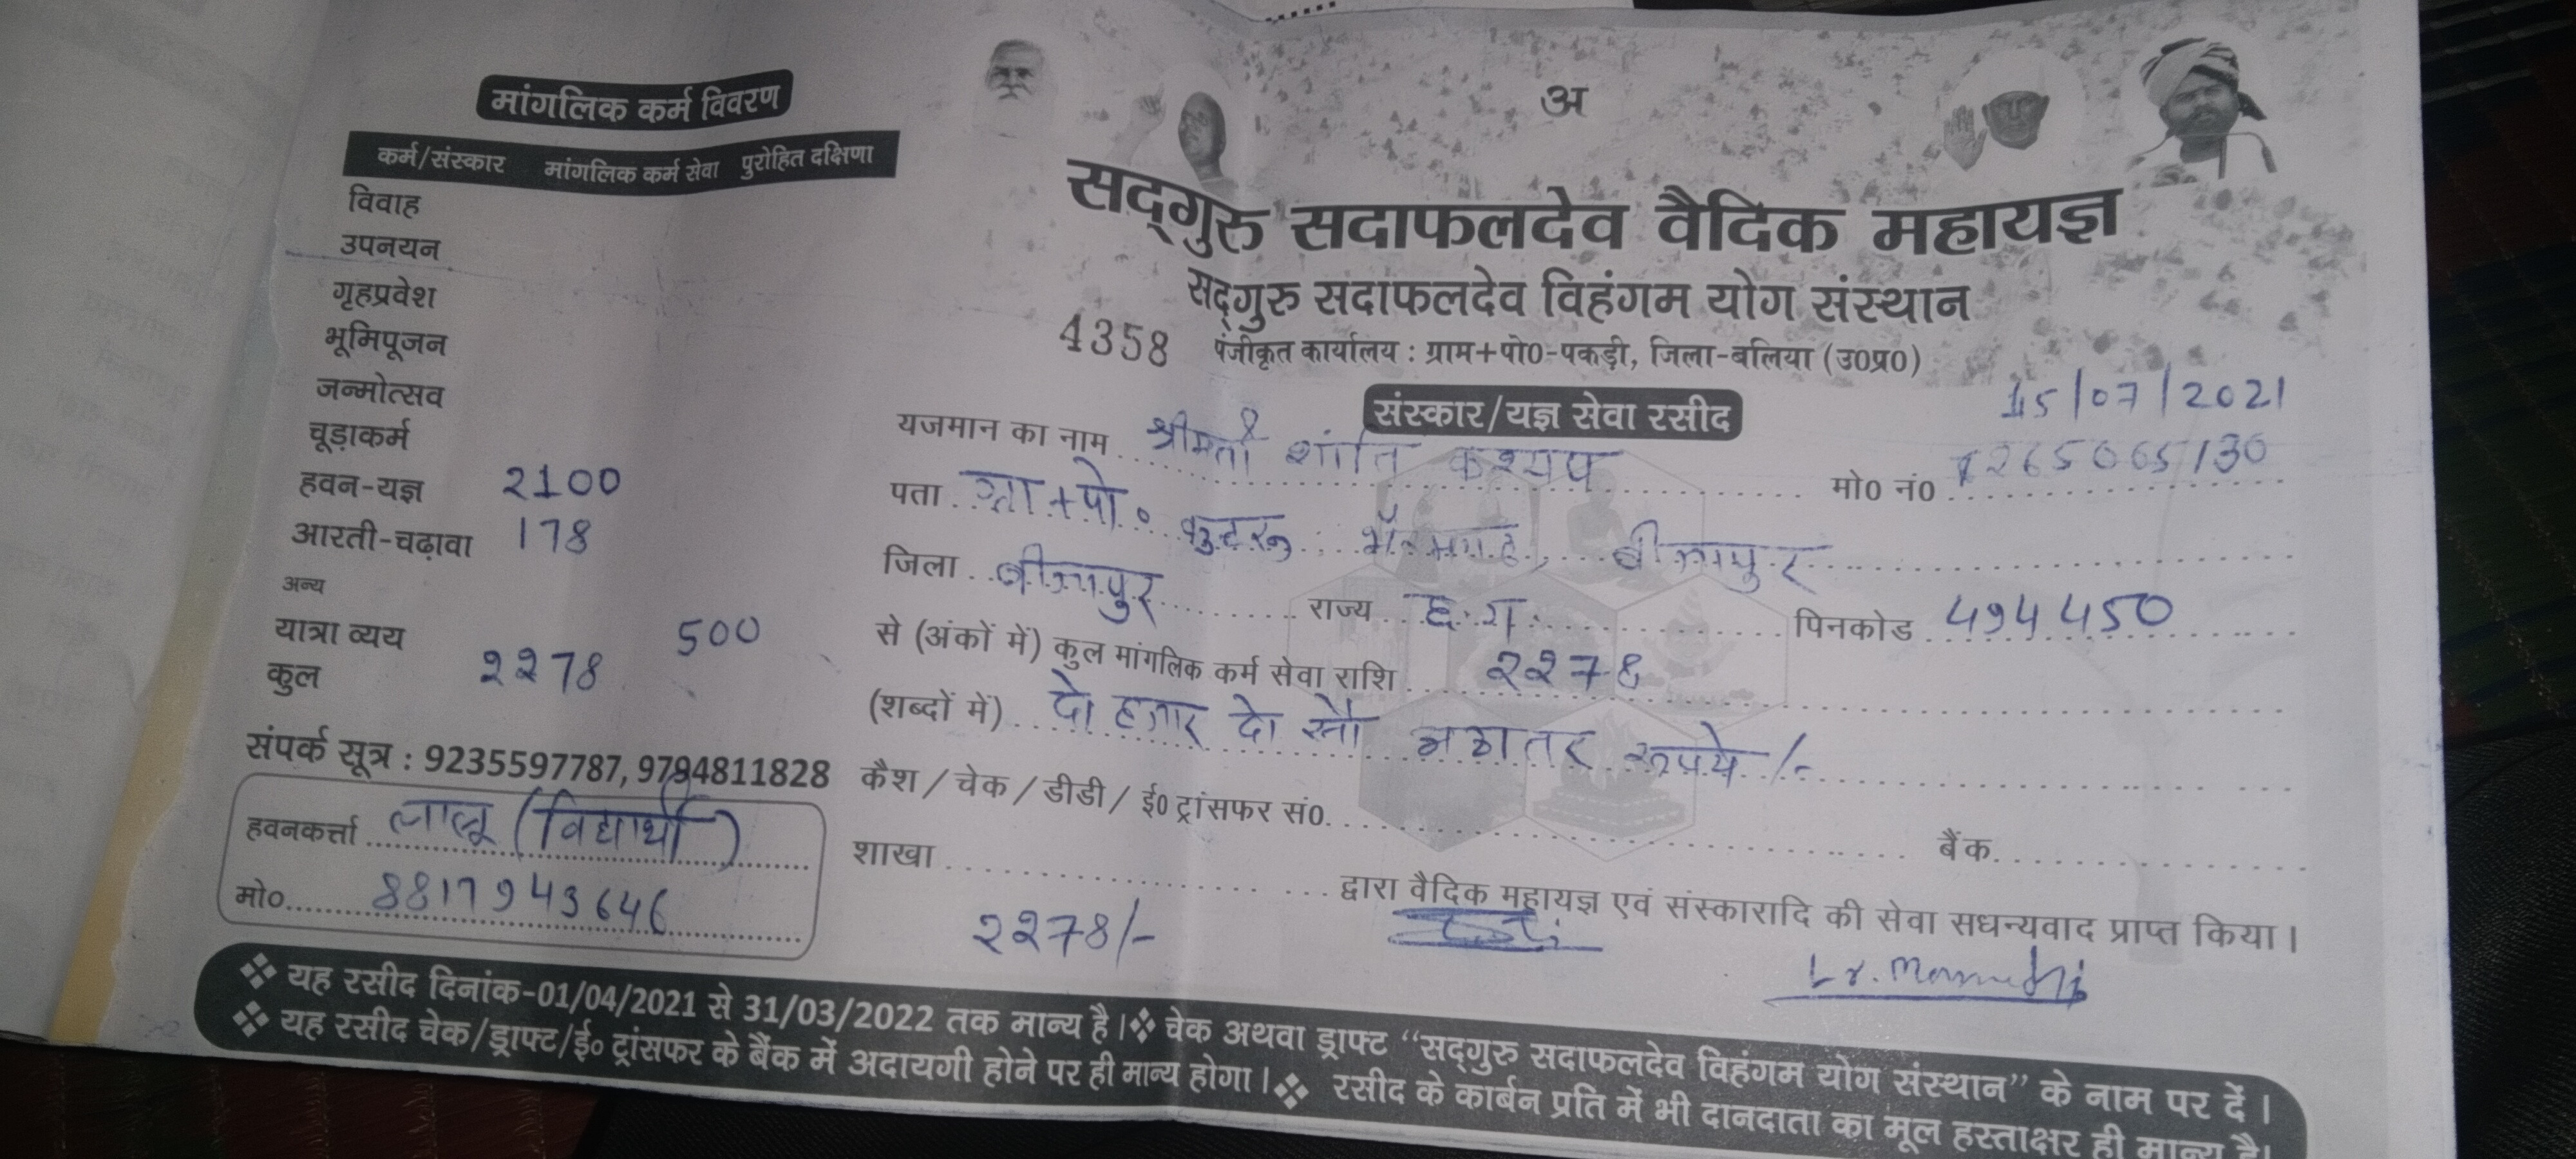 मांगलिक कर्म विवरण
कर्म/संस्कार मांगलिक कर्म सेवा पुरोहित दक्षिणा
विवाह
उपनयन
गृहप्रवेश
भूमिपूजन
जन्मोत्सव
चूड़ाकर्म
हवन-यज्ञ 2100
आरती-चढ़ावा 178
अन्य
यात्रा व्यय 500
कुल 2278
संपर्क सूत्र : 9235597787, 9794811828
हवनकर्त्ता लालू (विद्यार्थी)
मो०. 8817943646
अ
सद्गुरु सदाफलदेव वैदिक महायज्ञ
सद्गुरु सदाफलदेव विहंगम योग संस्थान
4358 पंजीकृत कार्यालय : ग्राम+पो0-पकड़ी, जिला-बलिया (उ0प्र0)
संस्कार/यज्ञ सेवा रसीद 15/07/2021
यजमान का नाम श्रीमती शांति कश्यप मो0 नं0 7265065130
पता ग्रा+पो० कुटरू, बीजापुर
जिला बीजापुर राज्य छ.ग. पिनकोड 494450
से (अंकों में) कुल मांगलिक कर्म सेवा राशि 2278
(शब्दों में) दो हजार दो सौ अठातर रूपये /-
कैश / चेक / डीडी / ई0 ट्रांसफर सं0. बैंक
शाखा द्वारा वैदिक महायज्ञ एवं संस्कारादि की सेवा सधन्यवाद प्राप्त किया।
2278/-
❖ यह रसीद दिनांक-01/04/2021 से 31/03/2022 तक मान्य है।❖ चेक अथवा ड्राफ्ट “सद्गुरु सदाफलदेव विहंगम योग संस्थान” के नाम पर दें।
❖ यह रसीद चेक/ड्राफ्ट/ई० ट्रांसफर के बैंक में अदायगी होने पर ही मान्य होगा।❖ रसीद के कार्बन प्रति में भी दानदाता का मूल हस्ताक्षर ही मान्य है।